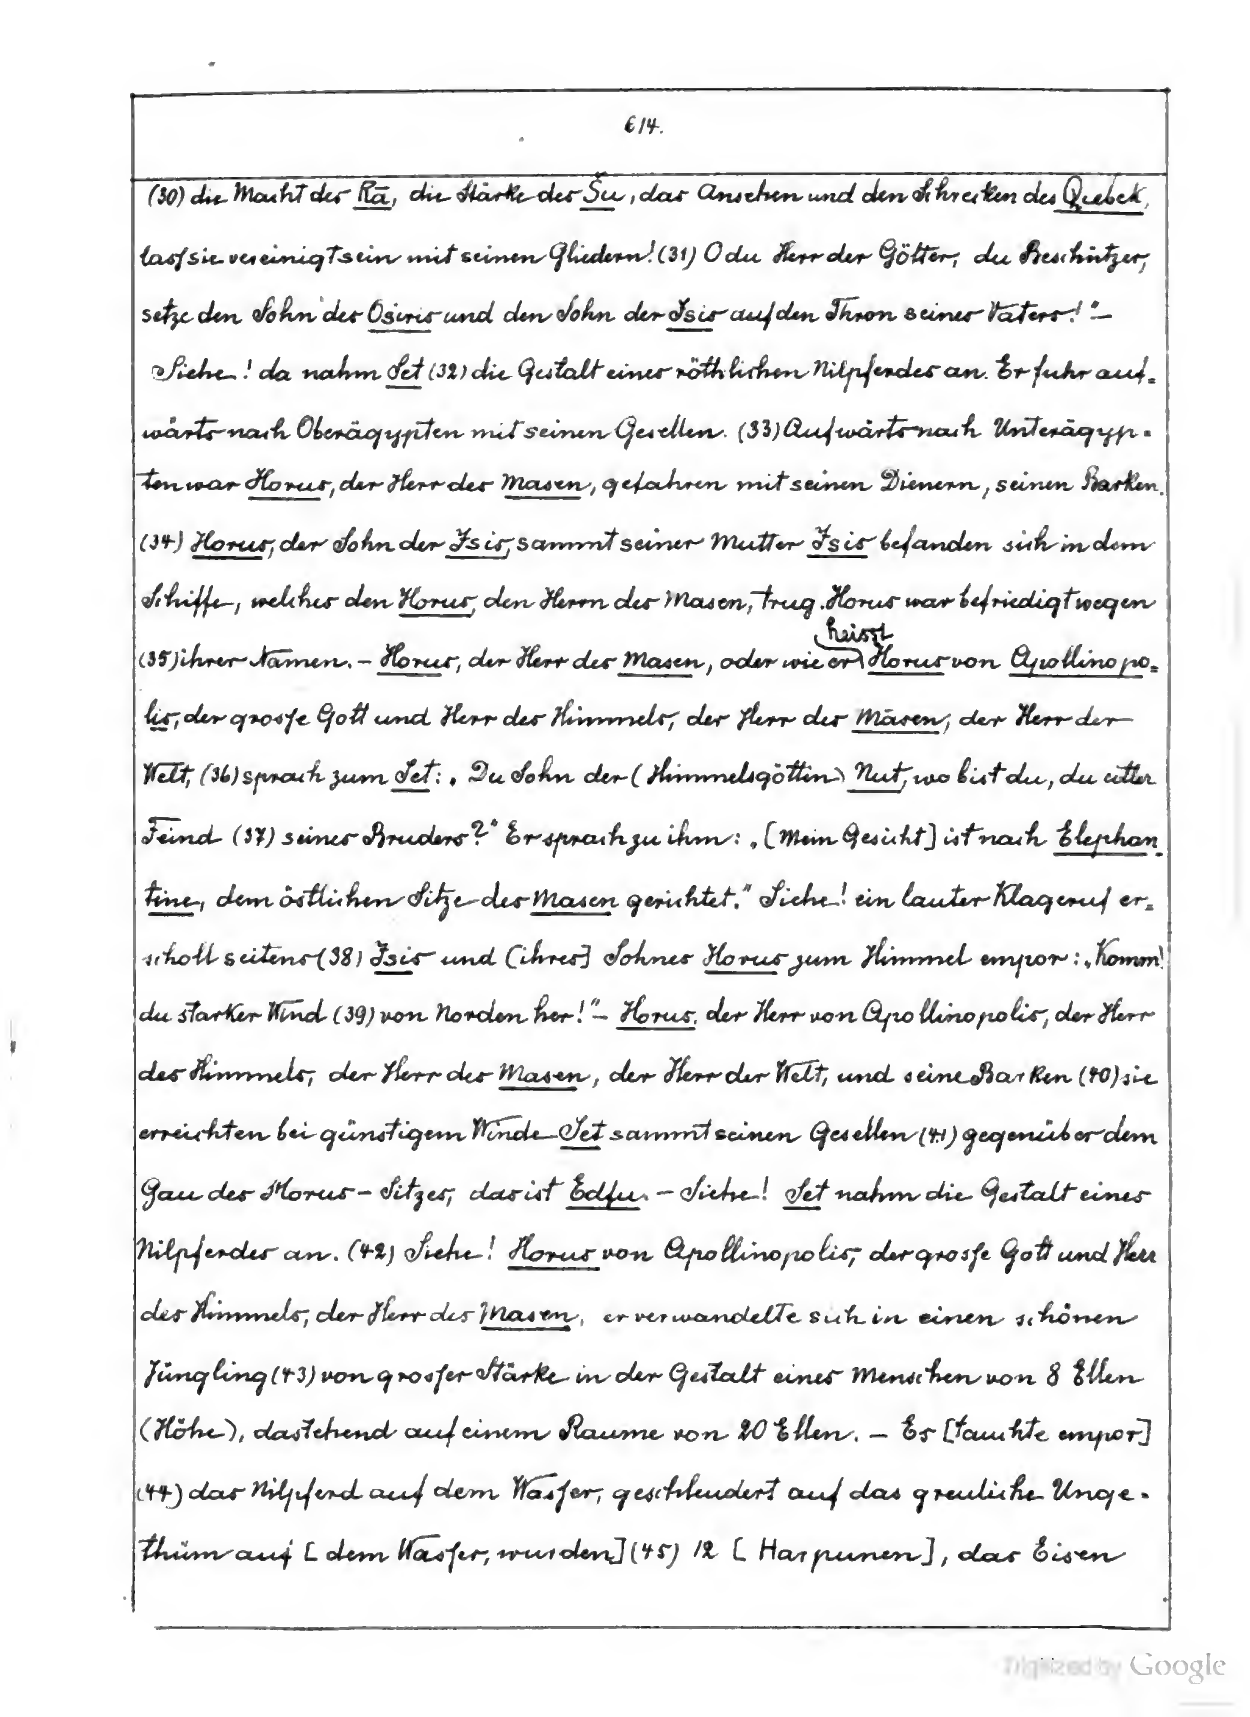 614.
(30) die Macht des Rā, die Stärke des Šu, das Ansehen und den Schrecken des Quebek,
lass sie vereinigt sein mit seinen Gliedern! (31) O du Herr der Götter, du Beschützer,
setze den Sohn des Osiris und den Sohn der Isis auf den Thron seines Vaters!" –
Siehe! da nahm Set (32) die Gestalt eines röthlichen Nilpferdes an. Er fuhr auf-
wärts nach Oberägypten mit seinen Gesellen. (33) Aufwärts nach Unterägyp-
ten war Horus, der Herr des Masen, gefahren mit seinen Dienern, seinen Barken.
(34) Horus, der Sohn der Isis, sammt seiner Mutter Isis befanden sich in dem
Schiffe, welches den Horus, den Herrn des Masen, trug. Horus war befriedigt wegen
heisst
(35) ihrer Namen. – Horus, der Herr des Masen, oder wie er Horus von Apollinopo-
lis, der grosse Gott und Herr des Himmels, der Herr des Māsen, der Herr der
Welt, (36) sprach zum Set: „Du Sohn der (Himmelsgöttin) Nut, wo bist du, du alter
Feind (37) seines Bruders?" Er sprach zu ihm: „[Mein Gesicht] ist nach Elephan-
tine, dem östlichen Sitze des Masen gerichtet." Siehe! ein lauter Klageruf er-
scholl seitens (38) Isis und [ihres] Sohnes Horus zum Himmel empor: „Komm!
du starker Wind (39) von Norden her!" – Horus, der Herr von Apollinopolis, der Herr
des Himmels, der Herr des Masen, der Herr der Welt, und seine Barken (40) sie
erreichten bei günstigem Winde Set sammt seinen Gesellen (41) gegenüber dem
Gau des Horus-Sitzes, das ist Edfu. – Siehe! Set nahm die Gestalt eines
Nilpferdes an. (42) Siehe! Horus von Apollinopolis, der grosse Gott und Herr
des Himmels, der Herr des Masen, er verwandelte sich in einen schönen
Jüngling (43) von grosser Stärke in der Gestalt eines Menschen von 8 Ellen
(Höhe), dastehend auf einem Raume von 20 Ellen. – Es [tauchte empor]
(44) das Nilpferd auf dem Wasser, geschleudert auf das greuliche Unge-
thüm auf [dem Wasser, wurden] (45) 12 [Harpunen], das Eisen
Digitized by Google